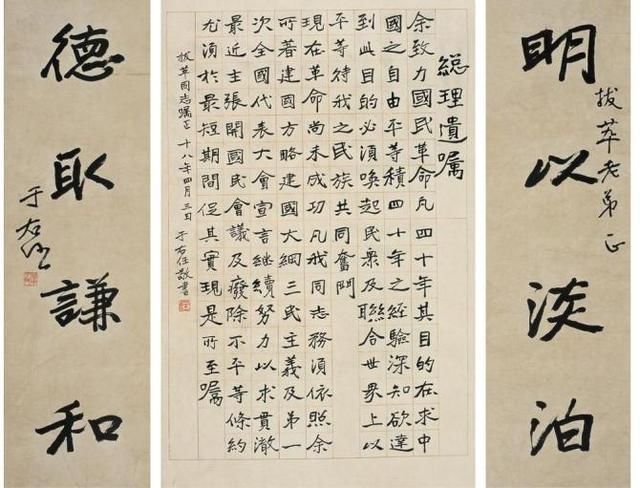 明以淡泊
拔萃老弟正
總理遺囑
余致力國民革命凡四十年其目的在求中
國之自由平等積四十年之經驗深知欲達
到此目的必須喚起民眾及聯合世界上以
平等待我之民族共同奮鬥
現在革命尚未成功凡我同志務須依照余
所著建國方略建國大綱三民主義及第一
次全國代表大會宣言繼續努力以求貫澈
最近主張開國民會議及廢除不平等條約
尤須於最短期間促其實現是所至囑
拔萃同志囑正 十八年四月三日 于右任敬書
德取謙和
于右任